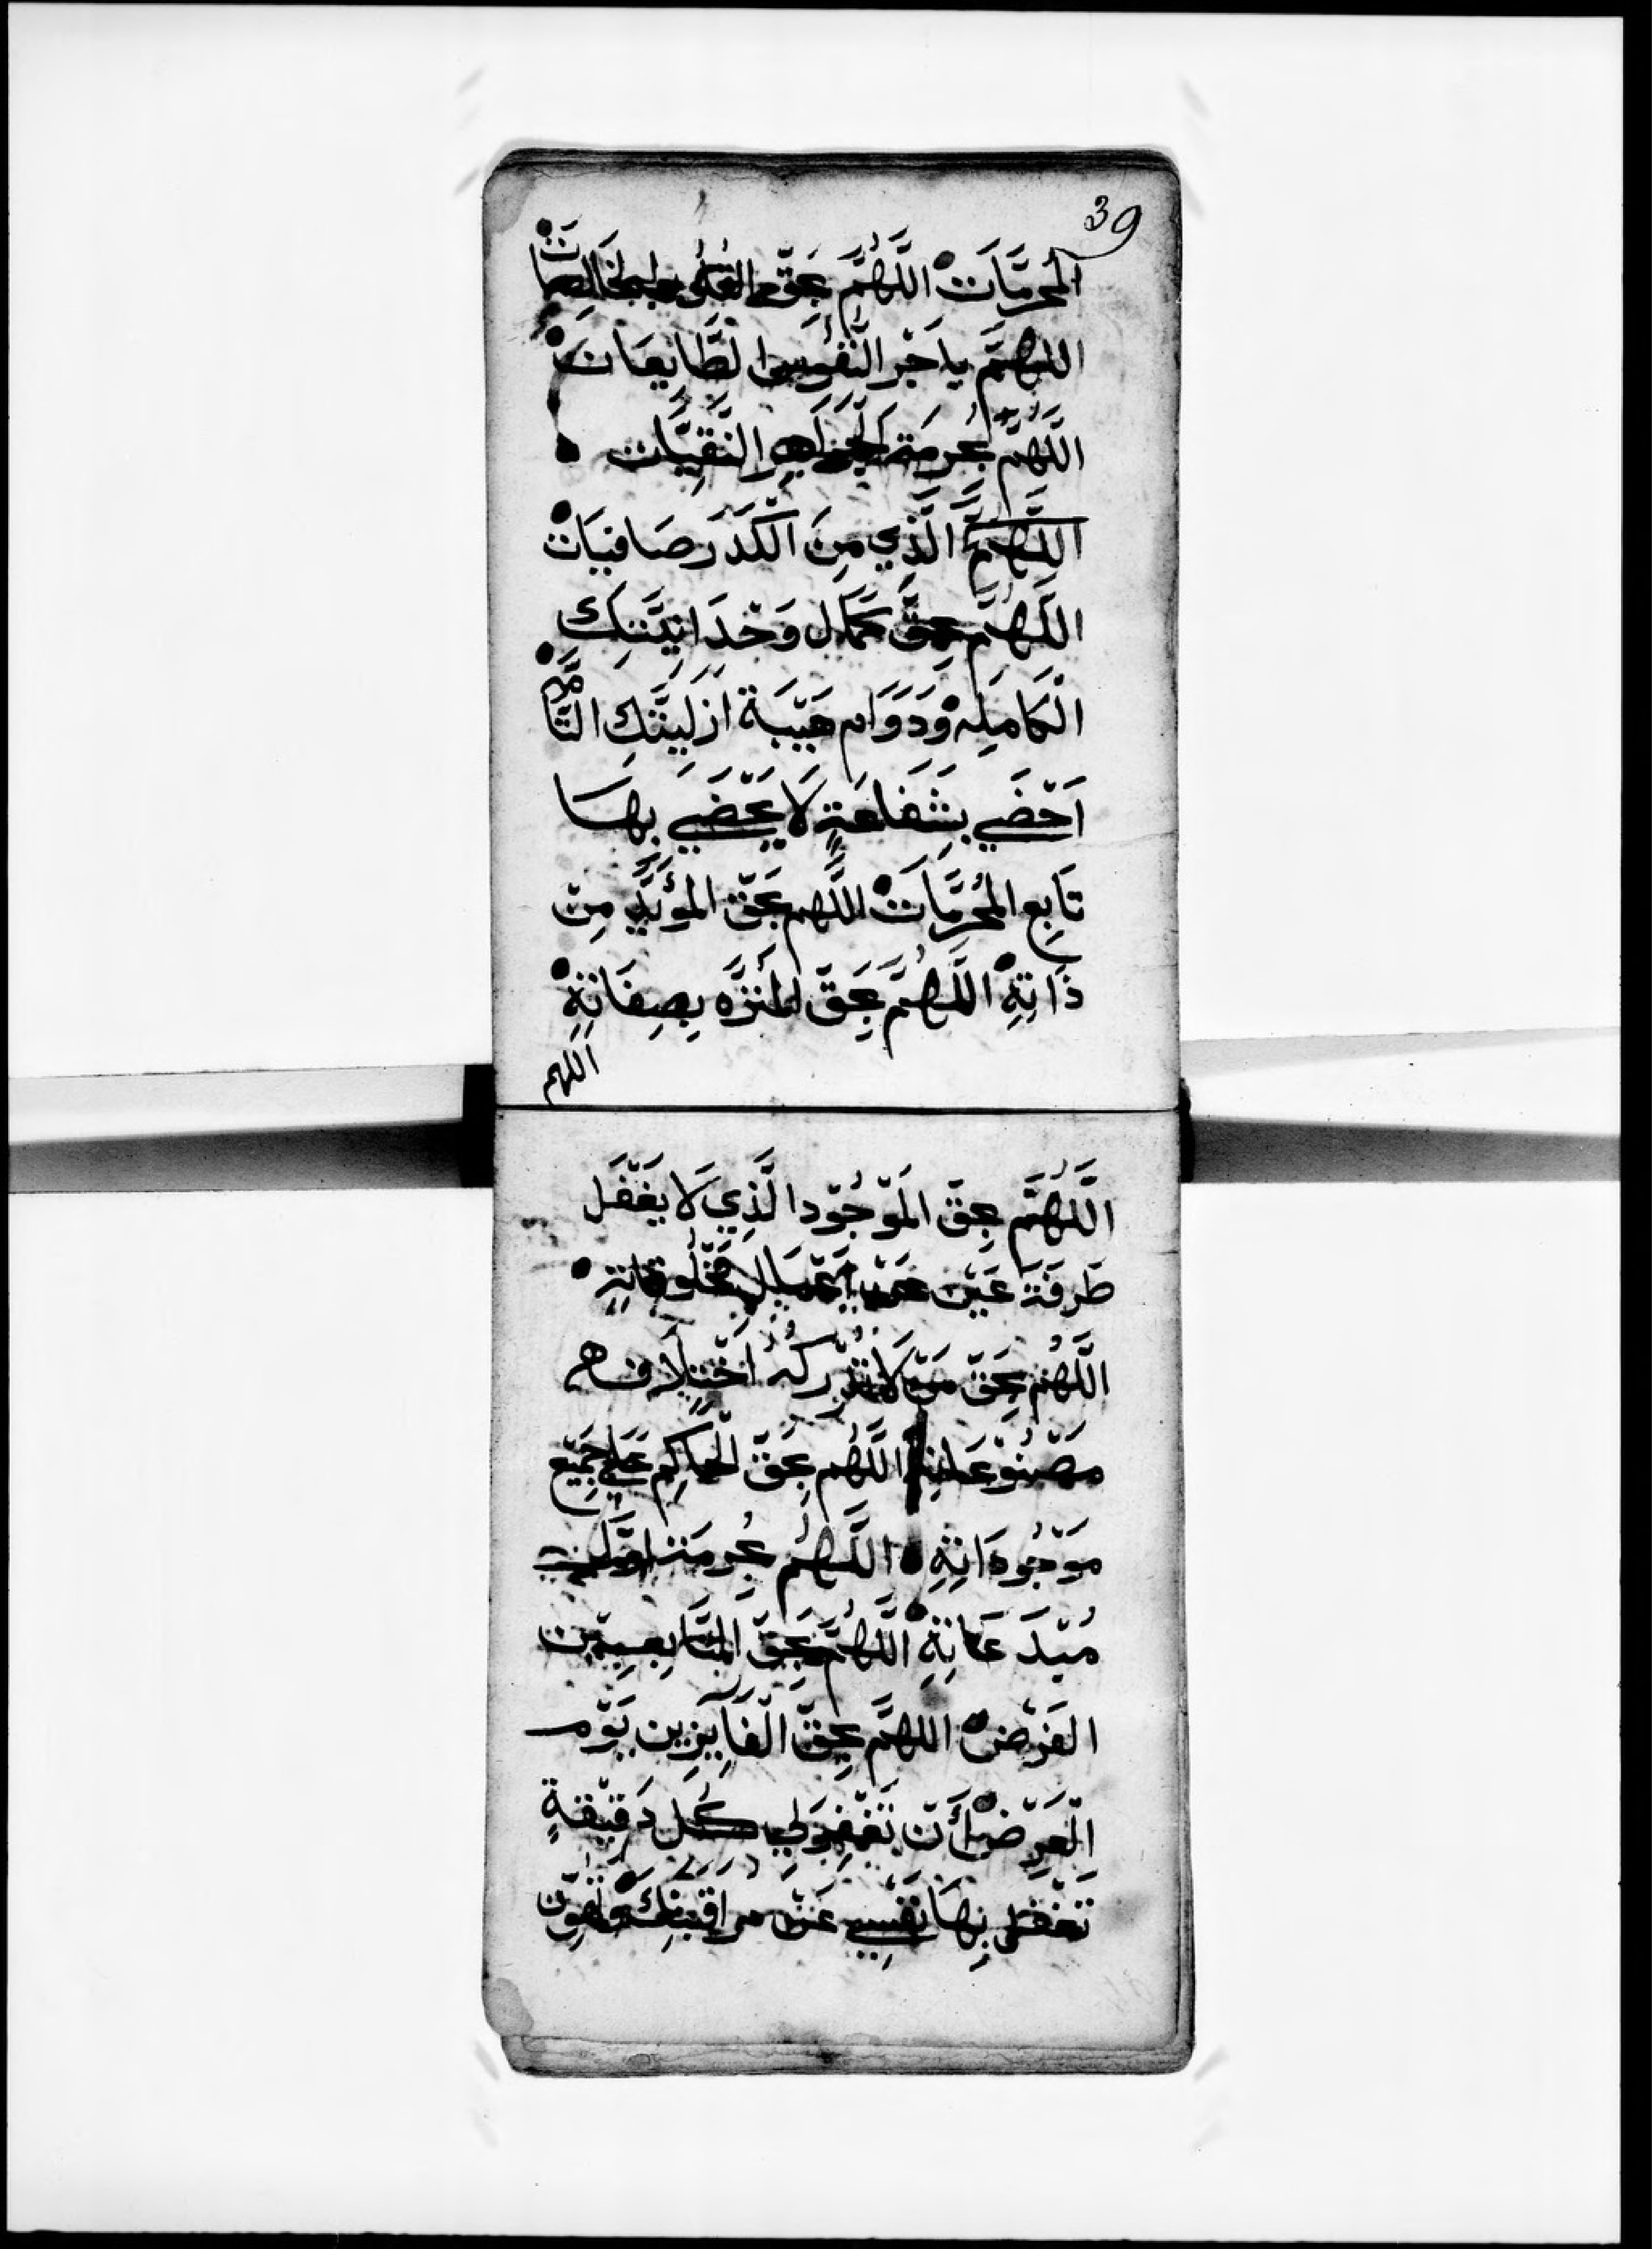 39
المُحرَّمَاتْ اللَّهُمَّ بِحَقّ القُلُوب الخَالِصَاتْ
اللهمَّ ياجَر النُّفُوس الطَّايِعَاتْ
اللَّهُمَّ بحُرمَة الجَوَاهِر النَّقِيَّات
اللَّهُمَّ الَّذِي مِنَ الْكَدَر صَافيَاتْ
اللَّهُمَّ بِحقّ كَمَال وَحْدَانِيَّتِكَ
الْكَامِلِه وَدَوَام هَيْبَة ازَلِيَّتِكَ التَّامَّه
اَحْضَي بِشَفَاعَةٍ لَا يَحْضَي بِهَا
تَابِع المُحرَّمَاتْ اللَّهم بحَقّ المؤَيَّدِ مِنْ
ذَاتِهِ اللَّهُمَّ بِحَقّ المنَزَّه بِصِفَاتِهِ
اللهم
اللَّهُمَّ بِحَقّ المَوْجُوْد الَّذِي لَا يَغْفَل
طَرفَةَ عَيْن عَنْ مَخْلُوقَاتِهِ
اللَّهُم بِحَقّ مَنْ لَا تُدْرِكُهُ اخْتِلَاف
مَصْنُوْعَاتِهِ اللَّهُم بِحَقّ الحاكِم عَلَي جَمِيْع
مَوْجُودَاتِهِ اللَّهُم بحُرمَت
مُبْدَعَاتِهِ اللَّهُمَّ بِحَقّ المتَابِعِيْن
الفَرْضْ اللهمَّ بحِقّ الْفَايِزِين يَوْم
الْعَرْضْ أَن تَغْفِر لِي كُل دَقِيْقةٍ
تَغْفَل بِهَا نَفْسِي عَنْ مرَاقَبتِكَ وَتهَوّن